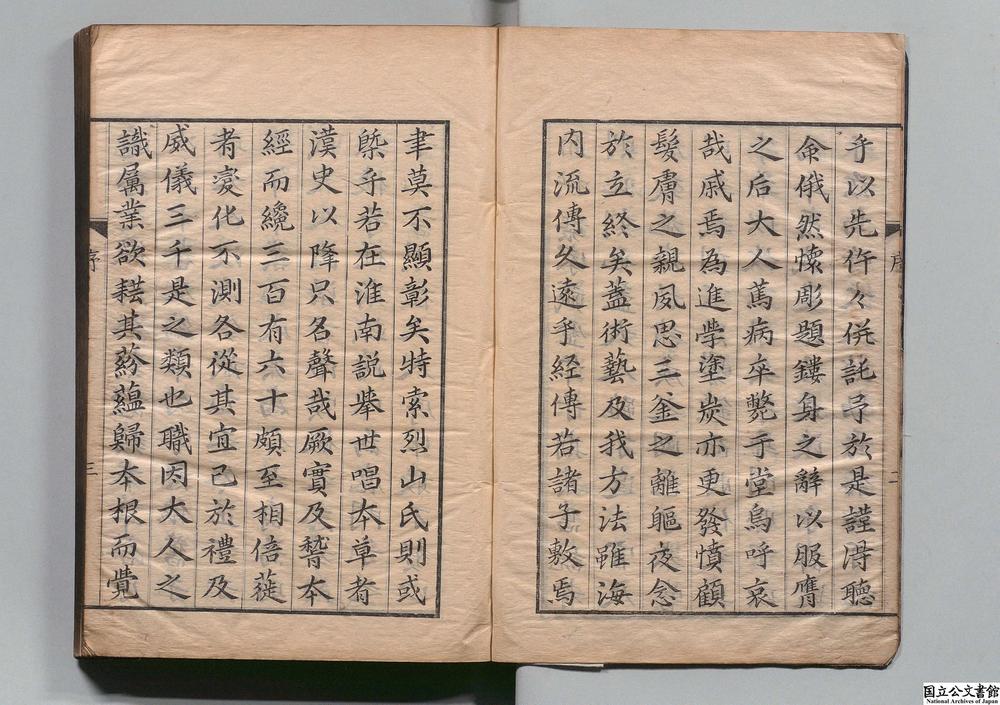 乎以先仵々併託予於是謹淂聽
命俄然懷彫題鏤身之辭以服膺
之后大人篤病卒斃于堂烏呼哀
哉戚焉為進學塗炭亦更發憤顧
髮膚之親夙思三釜之離軀夜念
於立終矣蓋術藝及我方法雖海
内流傳久遠乎経傳若諸子敷焉
序
二
聿莫不顯彰矣特索烈山氏則或
槩乎若在淮南説挙世唱本草者
漢史以降只名聲哉厥實及嵆本
經而纔三百有六十頗至相倍蓰
者変化不測各從其宜已於禮及
威儀三千是之類也職因大人之
識属業欲耘其蕵蘊歸本根而覺
序
三
国立公文書館
National Archives of Japan